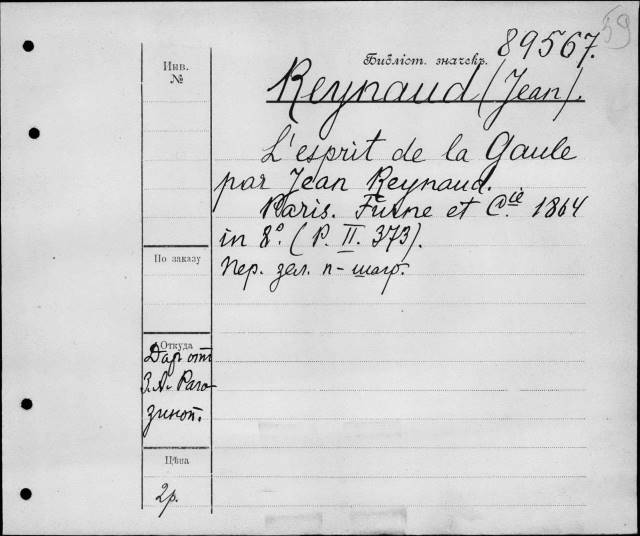 59
89567.
Библіот. значекъ.
Инв.
№
Reynaud (Jean).
L'esprit de la Gaule
par Jean Reynaud.
Paris. Furne et Cie. 1864
in 8°. (P. II. 373).
По заказу
Пер. зел. п-шагр.
Откуда
Дар от
З. А. Раго-
зиной.
Цѣна
2р.